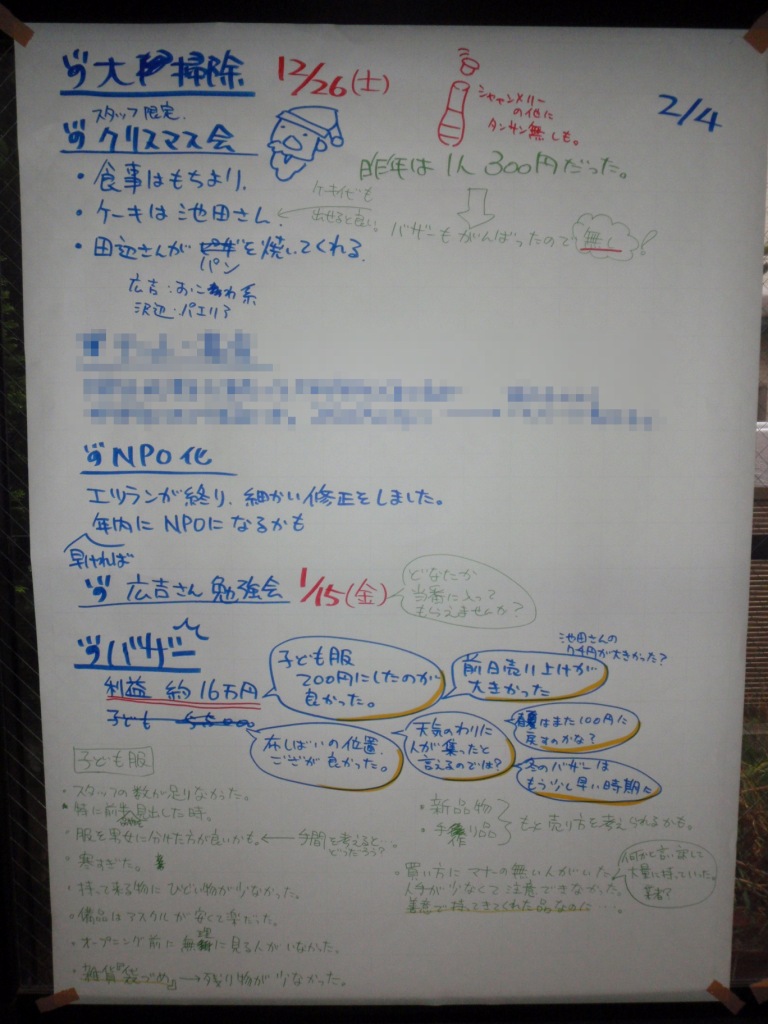 大掃除 12/26(土)
2/4
シャンメリー
の他に
タンサン無しも。
スタッフ限定
クリスマス会
昨年は1人300円だった。
・食事はもちより。
・ケーキは池田さん。
ケーキ代も
出せると良い。
バザーもがんばったので無し!
・田辺さんがピザを焼いてくれる。
パン
広吉:おこわ系
沢辺:パエリア
NPO化
エツランが終り、細かい修正をしました。
年内にNPOになるかも
早ければ
広吉さん勉強会 1/15(金)
どなたか
当番に入って
もらえませんか?
バザー
利益 約16万円
子ども
子ども服
200円にしたのが
良かった。
前日売り上げが
大きかった
池田さんの
クチ円が大きかった?
布しばいの位置
ござが良かった。
天気のわりに
人が集ったと
言えるのでは?
春はまた100円に
戻すのかな?
冬のバザーは
もう少し早い時期に
子ども服
・スタッフの数が足りなかった。
・特に前半見出した時。
・服を男女に分けた方が良いかも。←手間を考えると…
どっだろう?
・寒すぎた。
・持って来る物にひどい物が少なかった。
・備品はマスカルが安くて楽だった。
・オープニング前に無理に見る人がいなかった。
・雑貨『袋づめ』→残り物が少なかった。
・新品物
・手作り品
もっと売り方を考えられるかも。
・買い方にマナーの無い人がいた。
人手が少なくて注意できなかった。
善意で持ってきてくれた品なのに…。
何かと言い訳して
大量に持っていった。
業者?